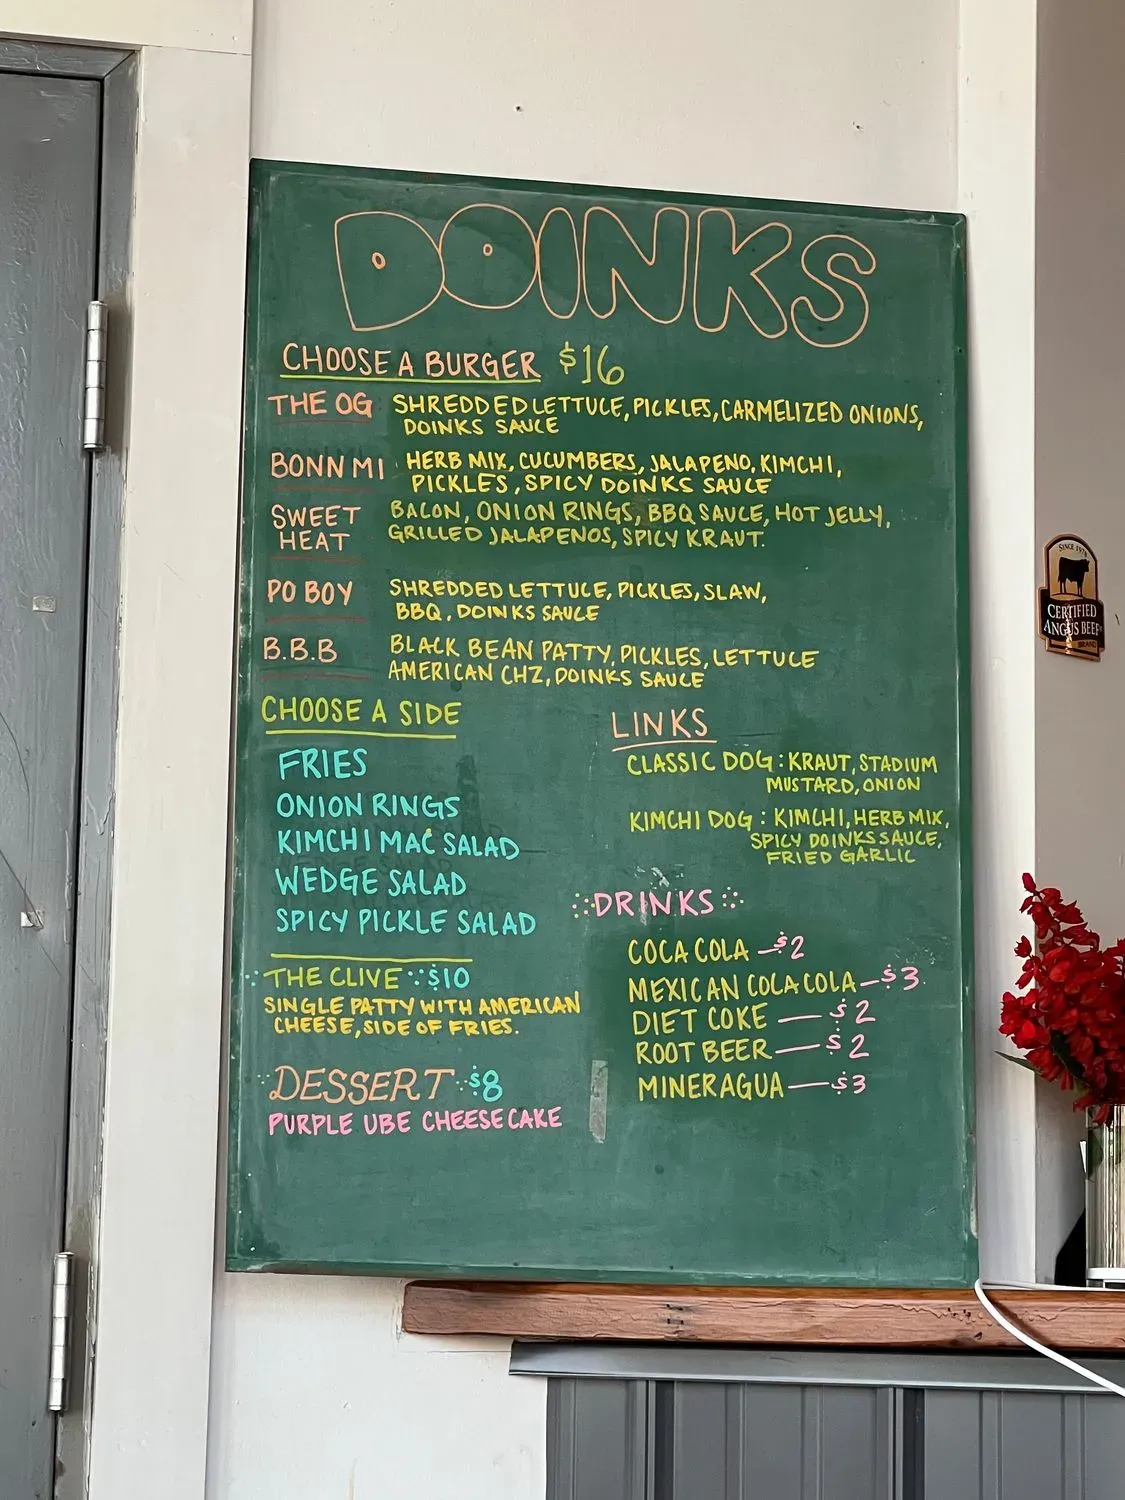 DOINKS
CHOOSE A BURGER $16
THE OG SHREDDED LETTUCE, PICKLES, CARMELIZED ONIONS,
DOINKS SAUCE
BONN MI HERB MIX, CUCUMBERS, JALAPENO, KIMCHI,
PICKLES, SPICY DOINKS SAUCE
SWEET HEAT BACON, ONION RINGS, BBQ SAUCE, HOT JELLY,
GRILLED JALAPENOS, SPICY KRAUT.
PO BOY SHREDDED LETTUCE, PICKLES, SLAW,
BBQ, DOINKS SAUCE
B.B.B BLACK BEAN PATTY, PICKLES, LETTUCE
AMERICAN CHZ, DOINKS SAUCE
CHOOSE A SIDE
FRIES
ONION RINGS
KIMCHI MAC SALAD
WEDGE SALAD
SPICY PICKLE SALAD
THE CLIVE $10
SINGLE PATTY WITH AMERICAN
CHEESE, SIDE OF FRIES.
DESSERT $8
PURPLE UBE CHEESECAKE
LINKS
CLASSIC DOG: KRAUT, STADIUM
MUSTARD, ONION
KIMCHI DOG: KIMCHI, HERB MIX,
SPICY DOINKS SAUCE,
FRIED GARLIC
DRINKS
COCA COLA — $2
MEXICAN COCA COLA — $3
DIET COKE — $2
ROOT BEER — $2
MINERAGUA — $3
SINCE 1978
CERTIFIED
ANGUS BEEF
BRAND